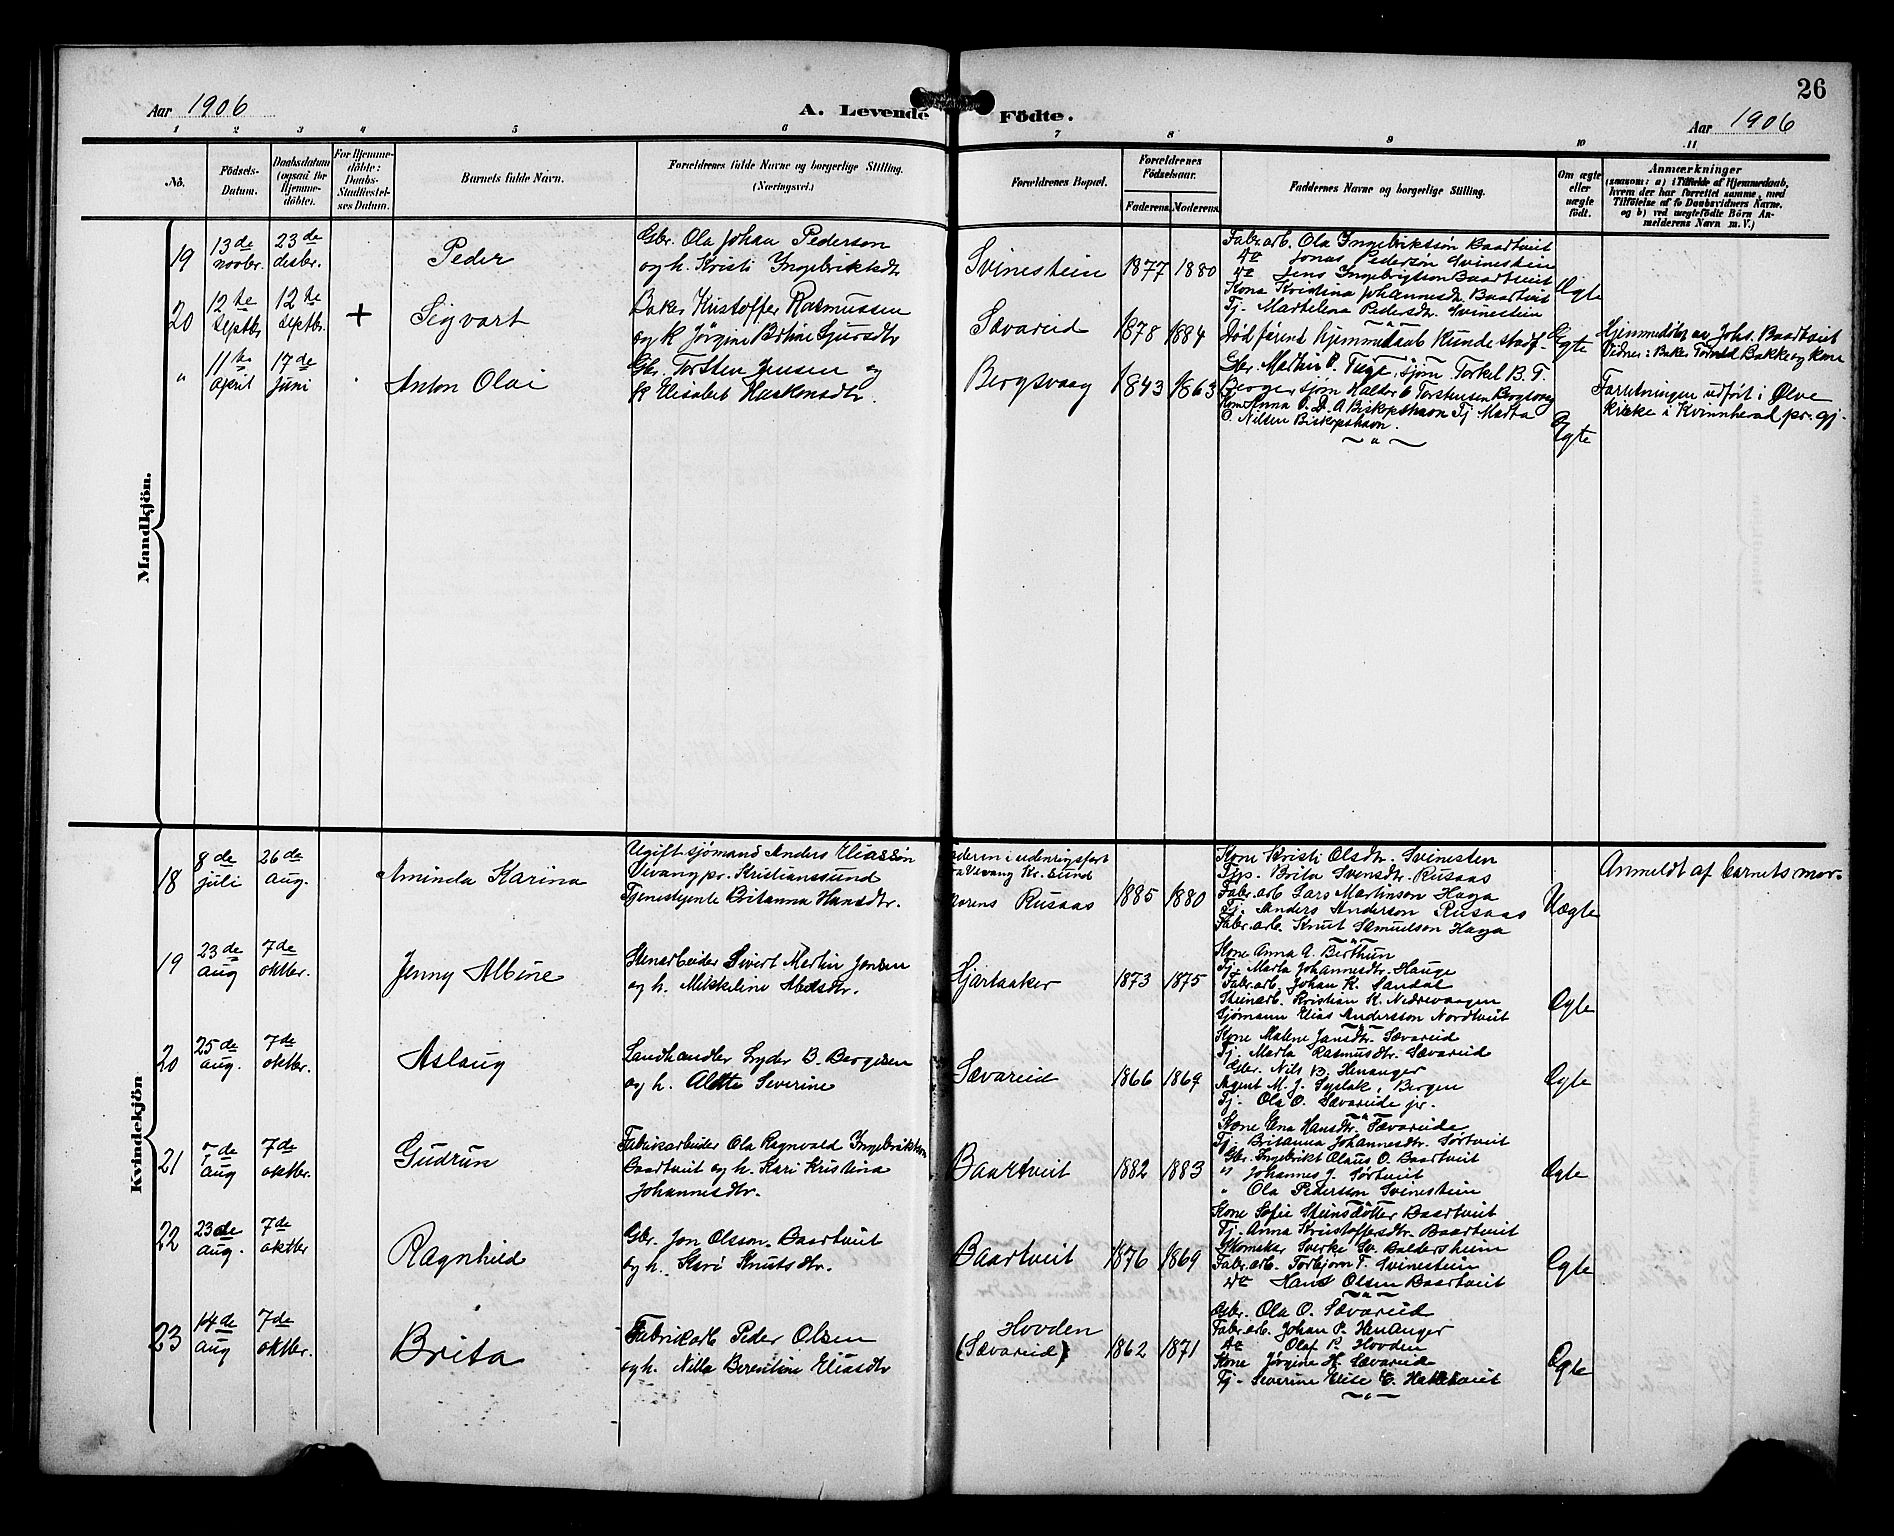 26
Aar 1906
A. Levende Födte.
Aar 1906
1 2 3 4 5 6 7 8 9 10 11
No.
Födsels-
Datum.
Daabsdatum
(ogsaa for
Hjemme-
döbte).
For Hjemme-
döbte:
Daabs-
Stadfæstel-
ses Datum.
Barnets fulde Navn.
Forældrenes fulde Navne og borgerlige Stilling.
(Næringsvei.)
Forældrenes Bopæl.
Forældrenes
Födselsaar.
Faderens. Moderens.
Faddernes Navne og borgerlige Stilling.
Om ægte
eller
uægte
födt.
Anmærkninger
(saasom: a) i Tilfælde af Hjemmedaab,
hvem der har forrettet samme, med
Tilföielse af to Daabsvidners Navne,
og b) ved uægtefödte Börn An-
melderens Navn m. V.)
Mandkjön.
19
13de
novbr.
23de
desbr.
Peder
Gbr. Ola Johan Pederson
og h. Kristi Ingebriktsdtr
Svinestein
1877 1880
Fabr.arb. Ola Ingebriktsön Baartveit
do Jonas Pedersön Svinestein
do Jens Ingebrigtson Baartveit
Kone Kristina Johannesdr. Baartveit
Tj. Martelena Pedersdtr. Svinestein
Ægte
20
12te
septbr
12te
septbr.
+
Sigvart
Baker Kristoffer Rasmussen
og k Jörgine Bertine Sjursdtr
Sævareid
1878 1884
Död förend hjemmedaab kunde stadf-
Ægte
Hjemmedöbt av Johs. Baartveit
Vidner: Baker Törres Bakke og kone
"
11te
april
17de
juni
Anton Olai
Gbr. Torsten Jensen og
k Elisabet Haakonsdtr.
Bergsvaag
1843 1863
Gbr. Martin P. Tuge, sjöm. Torkel B. T.
Berge, sjöm Haldor C Torstensen Bergsvag
Kone Anna P. D. A Biskopshavn Tj. Marta
O. Nilsen Biskopshavn.
Ægte
Forretningen udfört i Ölve
kirke i Kvinnherad pr. gj.
Kvindekjön
18
8de
juli
26de
Aug.
Aminda Karina
Ugift sjömand Anders Eliassön
Vevang pr. Kristianssund
Tjenestjente Britanna Hansdtr.
Faderen i udenrigsfart
fra Vevang Kr. sund
Morens Rusaas
1885 1880
Kone Kristi Olsdtr. Svinesten
Pige Brita Svensdtr. Rusaas
Fabr.arb Lars Martinson Haga
Tj. Anders Anderson Rusaas
Fabr.arb. Knut Samuelson Haga
Uægte
Anmeldt af barnets mor.
19
23de
aug
7de
oktbr.
Jenny Albine
Stenarbeider Sivert Martin Jensen
og h. Mikkeline Abelsdtr.
Hjartaaker
1873 1875
Kone Anna A. Berthun
Tj. Marta Johannesdtr. Hauge
Fabr.arb. Johan K. Sandal
Steinarb. Kristian K. Nedrevaagen
Sjömann Elias Andersson Nordtveit
Ægte
20
25de
aug.
7de
oktbr.
Aslaug
Landhandler Lyder B. Bergesen
og h. Alette Severine
Sævareid
1866 1869
Kone Malene Jansdtr. Sævareid
Tj. Marta Rasmusdtr. Sævareid
Gbr. Nils B. Henanger
Agent M. J. Syslak, Bergen
Tj. Ola O. Sævareide jr.
Ægte
21
5de
aug
7de
oktbr.
Gudrun
Fabrikarbeider Ola Ragnvald Ingebriktson
Baartveit og h. Kari Kristina
Johannesdtr.
Baartveit
1882 1883
Kone Ena Hansdtr. Sævareide
Tj. Britanna Johannesdtr. Sörtveit
Gbr. Ingebrikt Olaus O. Baartveit
" Johannes J. Sörtveit
" Ola Pedersson Svinestein
Ægte
22
23de
aug.
7de
oktbr
Ragnhild
Gbr. Jon Olsson Baartveit
og h. Kari Knutsdtr.
Baartveit
1876 1869
Kone Sofie Steinsdötter Baartveit
Tj. Anna Kristoffersdtr. Baartveit
Skomaker Sverke Sv. Baldersheim
Fabr.arb. Torbjorn T. Svinestein
do Hans Olsen Baartveit
Ægte
23
14de
aug
7de
oktbr.
Brita
Fabrikarb Peder Olsen
og h. Nilla Berentine Eliasdtr
Hovden
(Sævareid)
1862 1871
Gbr. Ola O. Sævareid
Fabr.arb. Johan P. Henanger
do Olaf P. Hovden
Kone Jörgine H. Sævareid
Tj. Severine Elise E.
Ægte